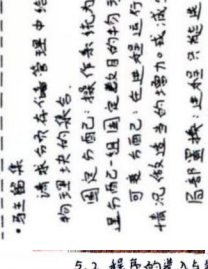 ·驻留集
请求分页存储管理中给
物理块的集合.
固定分配:操作系统为
里分配一组固定数目的物
可变分配:在进程运行
情况做适当的增加或减
局部置换:进程只能选
5.2 程序的装入与